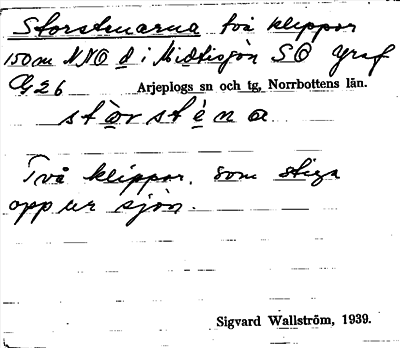 Storstenarna två klippor
150m NNO d i Midtisjön SO
G26 Arjeplogs sn och tg, Norrbottens län.
stòrstèna
Två klippor som stiga
opp ur sjön.
Sigvard Wallström, 1939.